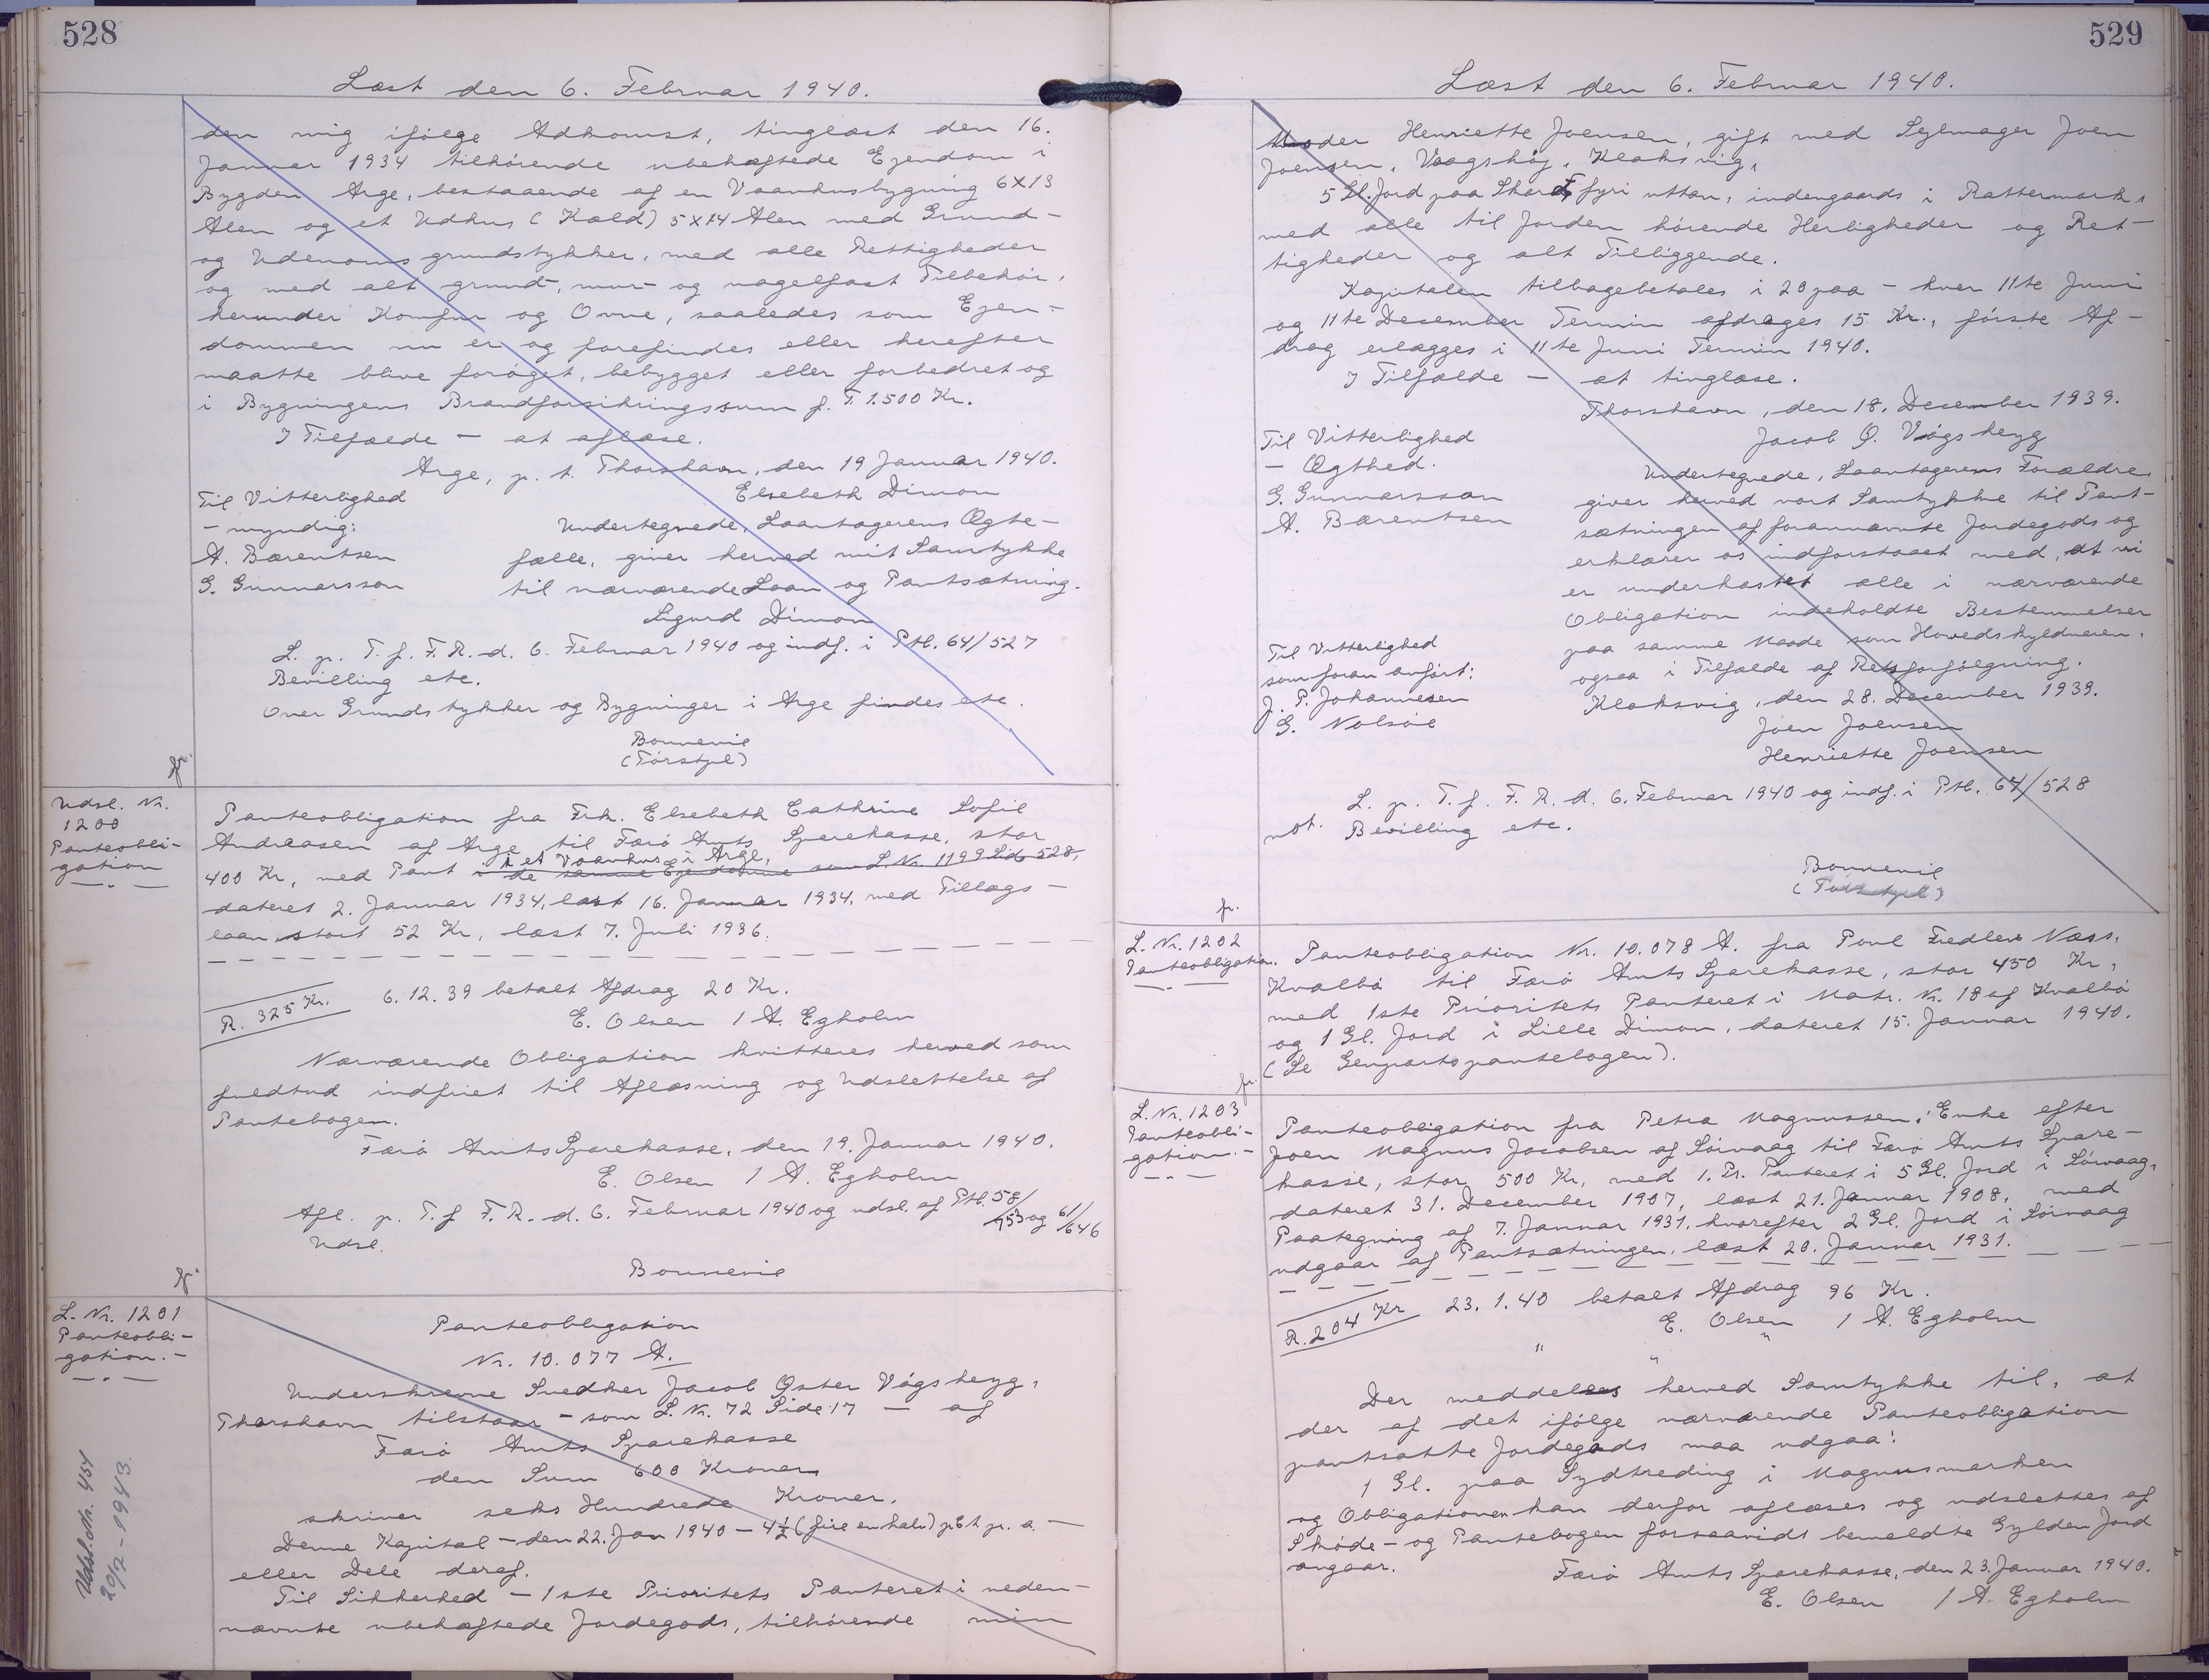 528
Læst den 6. Februar 1940.
den mig ifølge Adkomst, tinglæst den 16.
Januar 1934 tilhørende ubehæftede Ejendom i
Bygden Arge, bestaaende af en Vaanhusbygning 6X13
Alen og et Udhus (Kæld) 5X14 Alen med Grund-
og Udenomsgrundstykker, med alle Rettigheder
og med alt grund-, mur- og nagelfast Tilbehør,
herunder Komfur og Ovne, saaledes som Ejen-
dommen nu er og forefindes eller herefter
maatte blive forøget, bebygget eller forbedret og
i Bygningens Brandforsikringssum f. T. 1.500 Kr.
I Tilfælde — at aflæse.
Arge, p. t. Thorshavn, den 19 Januar 1940.
Til Vitterlighed
Elsebeth Dimon
- myndig:
Undertegnede, Laantagerens Ægte-
A. Bærentsen
fælle, giver herved mit Samtykke
G. Gunnarsson
til nærværende Laan og Pantsætning.
Sigurd Dimon
L. p. T. f. F. R. d. 6. Februar 1940 og indf. i Ptb. 64/527
Bevilling etc.
Over Grundstykker og Bygninger i Arge findes etc.
Bonnevie
fr.
Udsl. Nr.
1200
Panteobli-
gation
Panteobligation fra Frk. Elsebeth Cathrine Sofie
Andreasen af Arge til Færø Amts Sparekasse, stor
i et Vaanhus i Arge,
400 Kr, med Pant i de samme Ejendomme som L. Nr. 1199 Side 528,
dateret 2. Januar 1934, læst 16. Januar 1934, med Tillægs-
laan, stort 52 Kr, læst 7. Juli 1936.
R. 325 Kr.
6.12.39 betalt Afdrag 20 Kr.
E. Olsen / A. Egholm
Nærværende Obligation kvitteres herved som
fuldtud indfriet til Aflæsning og Udslettelse af
Pantebogen.
Færø Amts Sparekasse, den 19. Januar 1940.
E. Olsen / A. Egholm
Afl. p. T. f. F. R. d. 6. Februar 1940 og udsl. af Ptb. 58/753 og 61/646
Udsl.
Bonnevie
fr.
L. Nr. 1201
Panteobli-
gation.-
Panteobligation
Nr. 10.077 A.
Underskrevne Snedker Jacob Øster Vágsheyg,
Thorshavn tilstaar - som L. Nr. 72 Side 17 — af
Færø Amts Sparekasse
den Sum 600 Kroner
skriver seks Hundrede Kroner.
Denne Kapital - den 22. Jan 1940 - 4½ (fire en halv) pCt pr. a. -
eller Dele deraf.
Til Sikkerhed - 1ste Prioritets Panteret i neden-
nævnte ubehæftede Jordegods, tilhørende min
Udsl. Nr. 454
20/7-1943.
529
Læst den 6. Februar 1940.
Moder Henriette Joensen, gift med Sejlmager Joen
Joensen, Vaagshøj, Klaksvig,
5 Gl. Jord paa fyri uttan, indengaards i Rattermark,
med alle til Jorden hørende Herligheder og Ret-
tigheder og alt Tilliggende.
Kapitalen tilbagebetales i 20 paa - hver 11te Juni
og 11te December Termin afdrages 15 Kr., første Af-
drag erlægges i 11te Juni Termin 1940.
I Tilfælde — at tinglæse.
Thorshavn, den 18. December 1939.
Til Vitterlighed
Jacob Ø. Vágsheyg
- Ægthed.
Undertegnede, Laantagerens Forældre
G. Gunnarsson
giver herved vort Samtykke til Pant-
A. Bærentsen
sætningen af forannævnte Jordegods og
erklærer os indforstaaet med, at vi
er underkastet alle i nærværende
Obligation indeholdte Bestemmelser
paa samme Maade som Hovedskyldneren,
Til Vitterlighed
ogsaa i Tilfælde af Retsforfølgning.
som foran anført:
Klaksvig, den 28. December 1939.
J. P. Johannesen
Joen Joensen
G. Nolsøe
Henriette Joensen
L. p. T. f. F. R. d. 6. Februar 1940 og indf. i Ptb. 64/528
not. Bevilling etc.
Bonnevie
fr.
L. Nr. 1202
Panteobligation.
Panteobligation Nr. 10.078 A. fra Poul Fredlev Næss,
Kvalbø til Færø Amts Sparekasse, stor 450 Kr,
med 1ste Prioritets Panteret i Matr. Nr. 18 af Kvalbø
og 1 Gl. Jord i Lille Dimon, dateret 15. Januar 1940.
(Se Genpartspantebogen).
fr.
L. Nr. 1203
Panteobli-
gation.-
Panteobligation fra Petra Magnussen, Enke efter
Joen Magnus Jacobsen af Sørvaag til Færø Amts Spare-
kasse, stor 500 Kr, med 1. Pr. Panteret i 5 Gl. Jord i Sørvaag,
dateret 31. December 1907, læst 21. Januar 1908, med
Paategning af 7. Januar 1931, hvorefter 2 Gl. Jord i Sørvaag
udgaar af Pantsætningen, læst 20. Januar 1931.
R. 204 Kr
23.1.40 betalt Afdrag 96 Kr.
E. Olsen / A. Egholm
" " "
Der meddeles herved Samtykke til, at
der af det ifølge nærværende Panteobligation
pantsatte Jordegods maa udgaa:
1 Gl. paa Sydtreding i Magnusmarken
og Obligationen kan derfor aflæses og udslettes af
Skøde- og Pantebogen forsaavidt bemeldte Gylden Jord
angaar.
Færø Amts Sparekasse, den 23. Januar 1940.
E. Olsen / A. Egholm